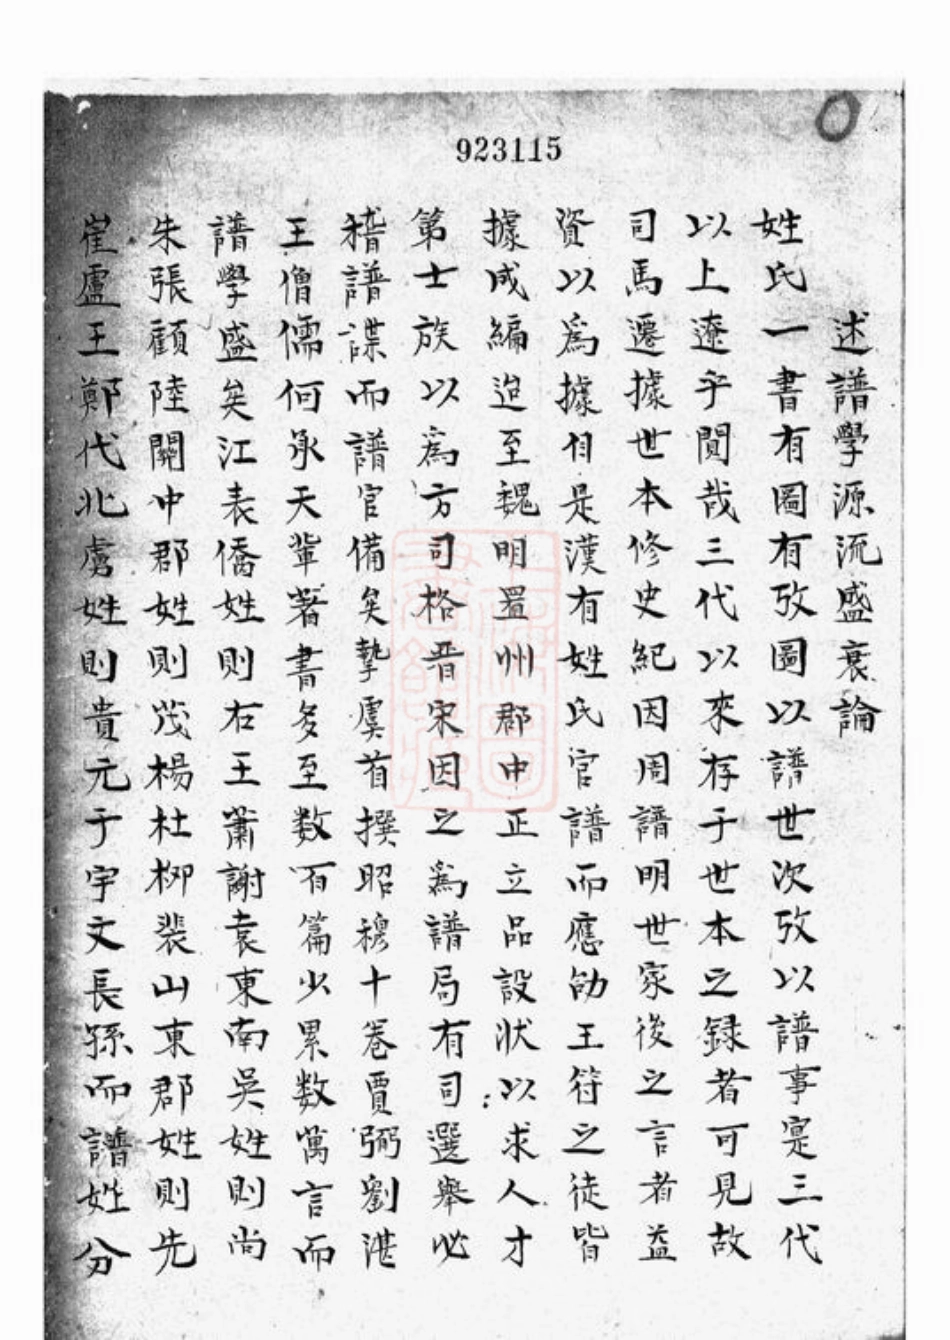 923115
述譜學源流盛衰論
姓氏一書有圖有攷圖以譜世次攷以譜事寔三代
以上遼乎閴哉三代以來存于世本之録者可見故
司馬遷據世本修史紀因周譜明世家後之言者益
資以為據自是漢有姓氏官譜而應劭王符之徒皆
據成編迨至魏明置州郡中正立品設狀以求人才
第士族以為方司格晋宋因之為譜局有司選舉必
稽譜諜而譜官備矣摯虞首撰昭穆十卷賈弼劉湛
王僧儒何承天輩著書多至数百篇少累数萬言而
譜學盛矣江表僑姓則右王蕭謝袁東南吳姓則尚
朱張顧陸關中郡姓則茂楊杜柳裴山東郡姓則先
崔盧王鄭代北虜姓則貴元于宇文長孫而譜姓分